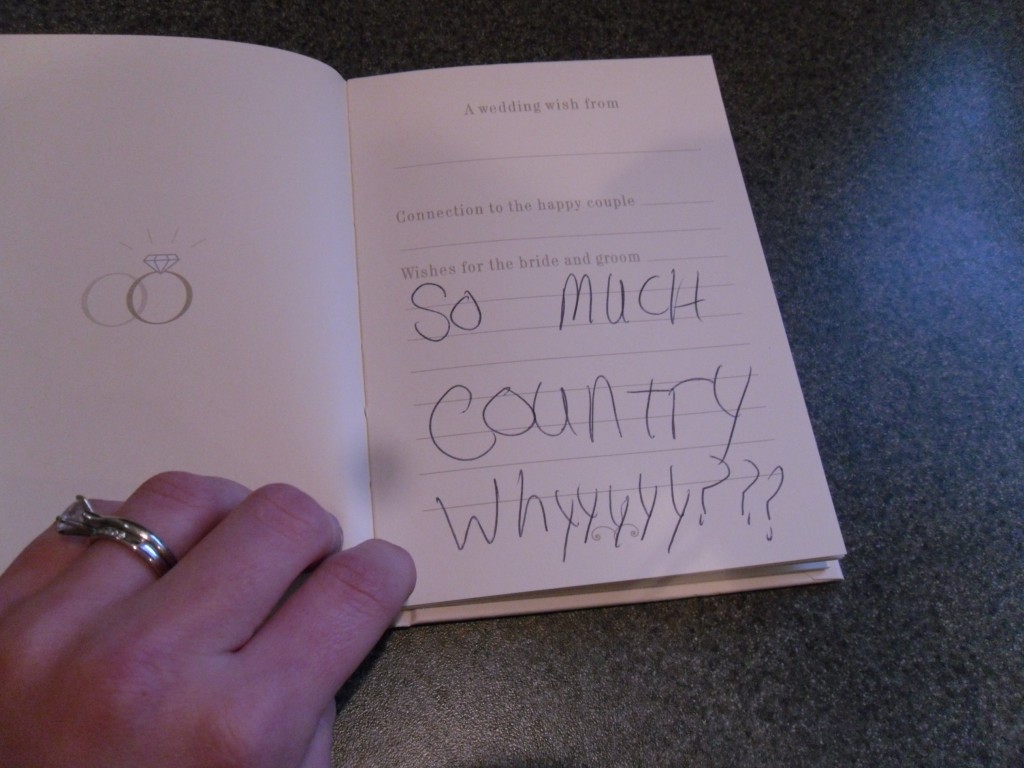 A wedding wish from
Connection to the happy couple
Wishes for the bride and groom
So MUCH
COUNTRY
Whyyyyyy???